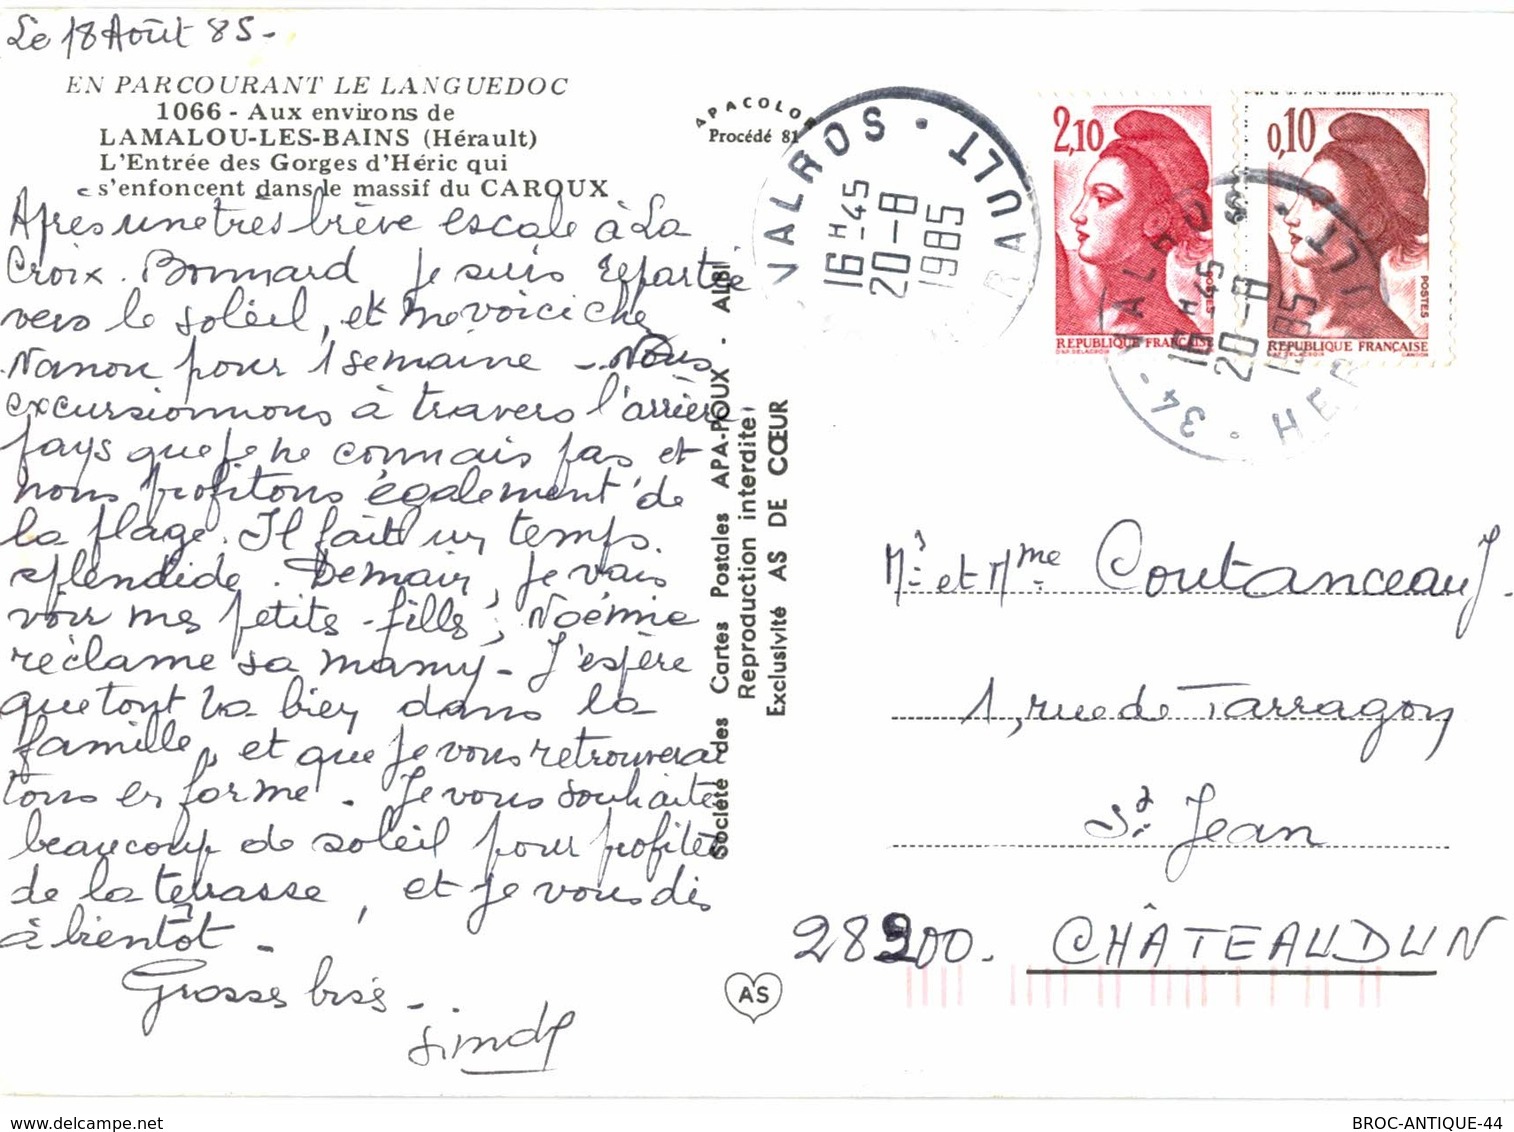 Le 18 Août 85-
EN PARCOURANT LE LANGUEDOC
1066 - Aux environs de
LAMALOU-LES-BAINS (Hérault)
L'Entrée des Gorges d'Héric qui
s'enfoncent dans le massif du CAROUX
Après une très brève escale à La
Croix. Bonnard je suis repartie
vers le soleil, et me voici chez
Nanou pour 1 semaine - Nous
excursionnons à travers l'arrière
pays que je ne connais pas et
nous profitons également de
la plage. Il fait un temps
splendide. Demain, je vais
voir mes petits-filles, Noémie
réclame sa mamy - J'espère
que tout va bien dans la
famille, et que je vous retrouverai
tous en forme. Je vous souhaite
beaucoup de soleil pour profiter
de la terrasse, et je vous dis
à bientôt -
Grosses bises -
APACOLOR
Procédé 81
Société des Cartes Postales APA-POUX - ALBI
Reproduction interdite
Exclusivité AS DE CŒUR
AS
VALRAS
16 H-45
20-8
1985
2,10
POSTES
REPUBLIQUE FRANÇAISE
D'AP. DELACROIX
0,10
POSTES
REPUBLIQUE FRANÇAISE
D'AP. DELACROIX
GANDON
16 H-45
20-8
1985
34
Mr et Mme Coutanceau
1, rue de Tarragon
St Jean
28200. CHÂTEAUDUN
www.delcampe.net
BROC-ANTIQUE-44